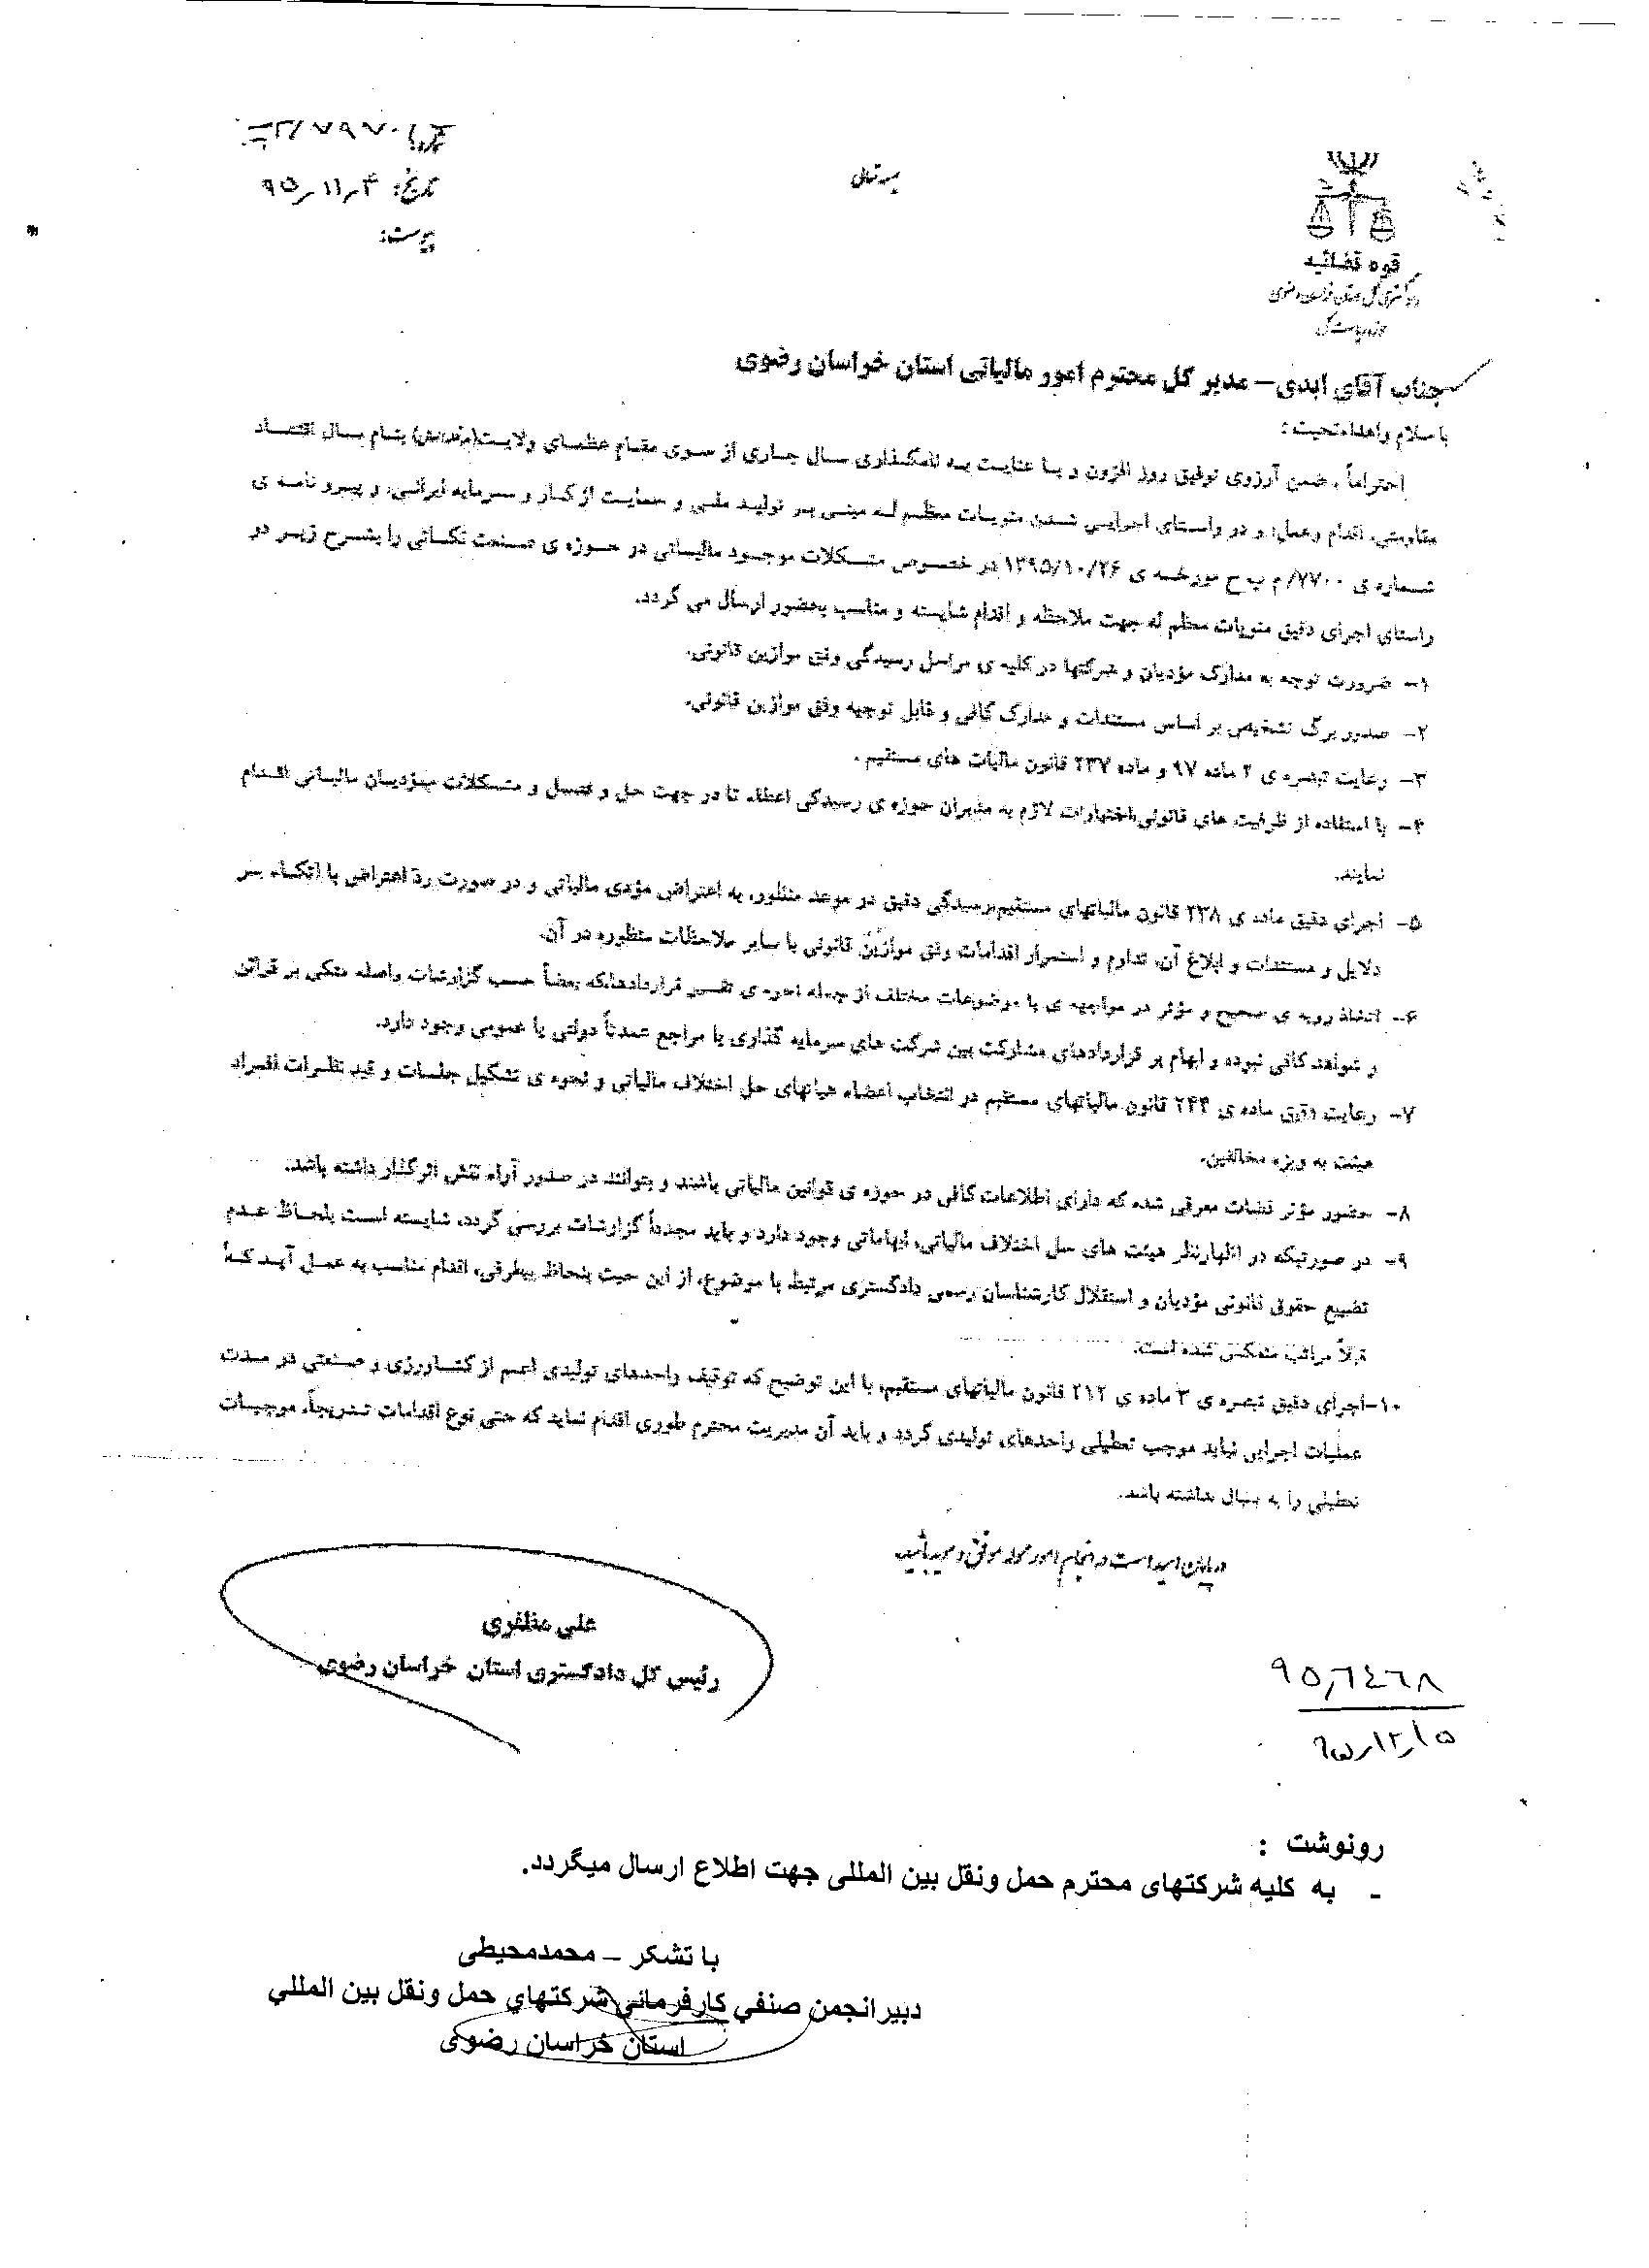 بسمه تعالی
تاریخ: ۹۵/۱۱/۴
پیوست:
قوه قضائیه
دادگستری کل استان خراسان رضوی
حوزه ریاست کل
جناب آقای ابدی – مدیر کل محترم امور مالیاتی استان خراسان رضوی
با سلام واهداءتحیت :
احتراماً ، ضمن آرزوی توفیق روز افزون و بـا عنایت بـه نامگـذاری سـال جـاری از سـوی مقـام عظمـای ولایـت بنـام سـال اقتصـاد
مقاومتی، اقدام وعمل؛ و در راستای اجرایـی شـدن منویـات معظـم لـه مبنـی بـر تولیـد ملـی و حمایـت از کـار و سـرمایه ایرانـی، و پیـرو نامـه ی
شـماره ی ۷۷۰۰/م ب ح مورخـه ی ۱۳۹۵/۱۰/۲۶ در خصـوص مشـکلات موجـود مالیـاتی در حـوزه ی صـنعت نکـاتی را بشـرح زیـر در
راستای اجرای دقیق منویات معظم له جهت ملاحظه و اقدام شایسته و مناسب بحضور ارسال می گردد.
۱– ضرورت توجه به مدارک مؤدیان و شرکتها در کلیه ی مراحل رسیدگی وفق موازین قانونی.
۲– صدور برگ تشخیص بر اساس مستندات و مدارک کافی و قابل توجیه وفق موازین قانونی.
۳– رعایت تبصره ی ۲ ماده ۹۷ و ماده ۲۳۷ قانون مالیات های مستقیم .
۴– با استفاده از ظرفیت های قانونی،اختیارات لازم به مدیران حوزه ی رسیدگی اعطاء تا در جهت حل و فصـل و مشـکلات مـؤدیـان مالیـاتی اقـدام
نمایند.
۵– اجرای دقیق ماده ی ۲۳۸ قانون مالیاتهای مستقیم،رسیدگی دقیق در موعد منظور، به اعتراض مؤدی مالیاتی و در صورت ردّ اعتراض با اتکـاء بـر
دلایل و مستندات و ابلاغ آن، تداوم و استمرار اقدامات وفق موازین قانونی با سایر ملاحظات منظوره در آن.
۶– اتخاذ رویه ی صحیح و مؤثر در مواجهه ی با موضوعات مختلف از جمله نحوه ی تفسیر قراردادها،که بعضاً حسب گزارشات واصله متکی بر قرائن
و شواهد کافی نبوده و ابهام بر قراردادهای مشارکت بین شرکت های سرمایه گذاری یا مراجع عمدتاً دولتی یا عمومی وجود دارد.
۷– رعایت دقیق ماده ی ۲۴۴ قانون مالیاتهای مستقیم در انتخاب اعضاء هیاتهای حل اختلاف مالیاتی و نحوه ی تشکیل جلسات و قید نظـرات افـراد
هیئت به ویژه مخالفین.
۸– حضور مؤثر قضات معرفی شده که دارای اطلاعات کافی در حوزه ی قوانین مالیاتی باشند و بتوانند در صدور آراء نقش اثرگذار داشته باشد.
۹– در صورتیکه در اظهارنظر هیئت های حل اختلاف مالیاتی، ابهاماتی وجود دارد و باید مجدداً گزارشات بررسی گردد، شایسته اسـت بلحـاظ عـدم
تضییع حقوق قانونی مؤدیان و استقلال کارشناسان رسمی دادگستری مرتبط با موضوع، از این حیث بلحاظ بیطرفی، اقدام مناسب به عمـل آیـد کـه
قبلاً مراتب منعکس شده است.
۱۰–اجرای دقیق تبصره ی ۳ ماده ی ۲۱۲ قانون مالیاتهای مستقیم، با این توضیح که توقیف واحدهای تولیدی اعـم از کشـاورزی و صـنعتی در مـدت
عملیات اجرایی نباید موجب تعطیلی واحدهای تولیدی گردد و باید آن مدیریت محترم طوری اقدام نماید که حتی نوع اقدامات تـدریجاً، موجبـات
تعطیلی را به دنبال نداشته باشد.
در پایان امید است در انجام امور محوله موفق و موید باشید.
علی مظفری
رئیس کل دادگستری استان خراسان رضوی
۹۵٫۶۴۶۸
۹۵٫۱۲٫۱۵
رونوشت :
- به کلیه شرکتهای محترم حمل ونقل بین المللی جهت اطلاع ارسال میگردد.
با تشکر – محمدمحیطی
دبیرانجمن صنفی کارفرمائی شرکتهای حمل ونقل بین المللي
استان خراسان رضوی